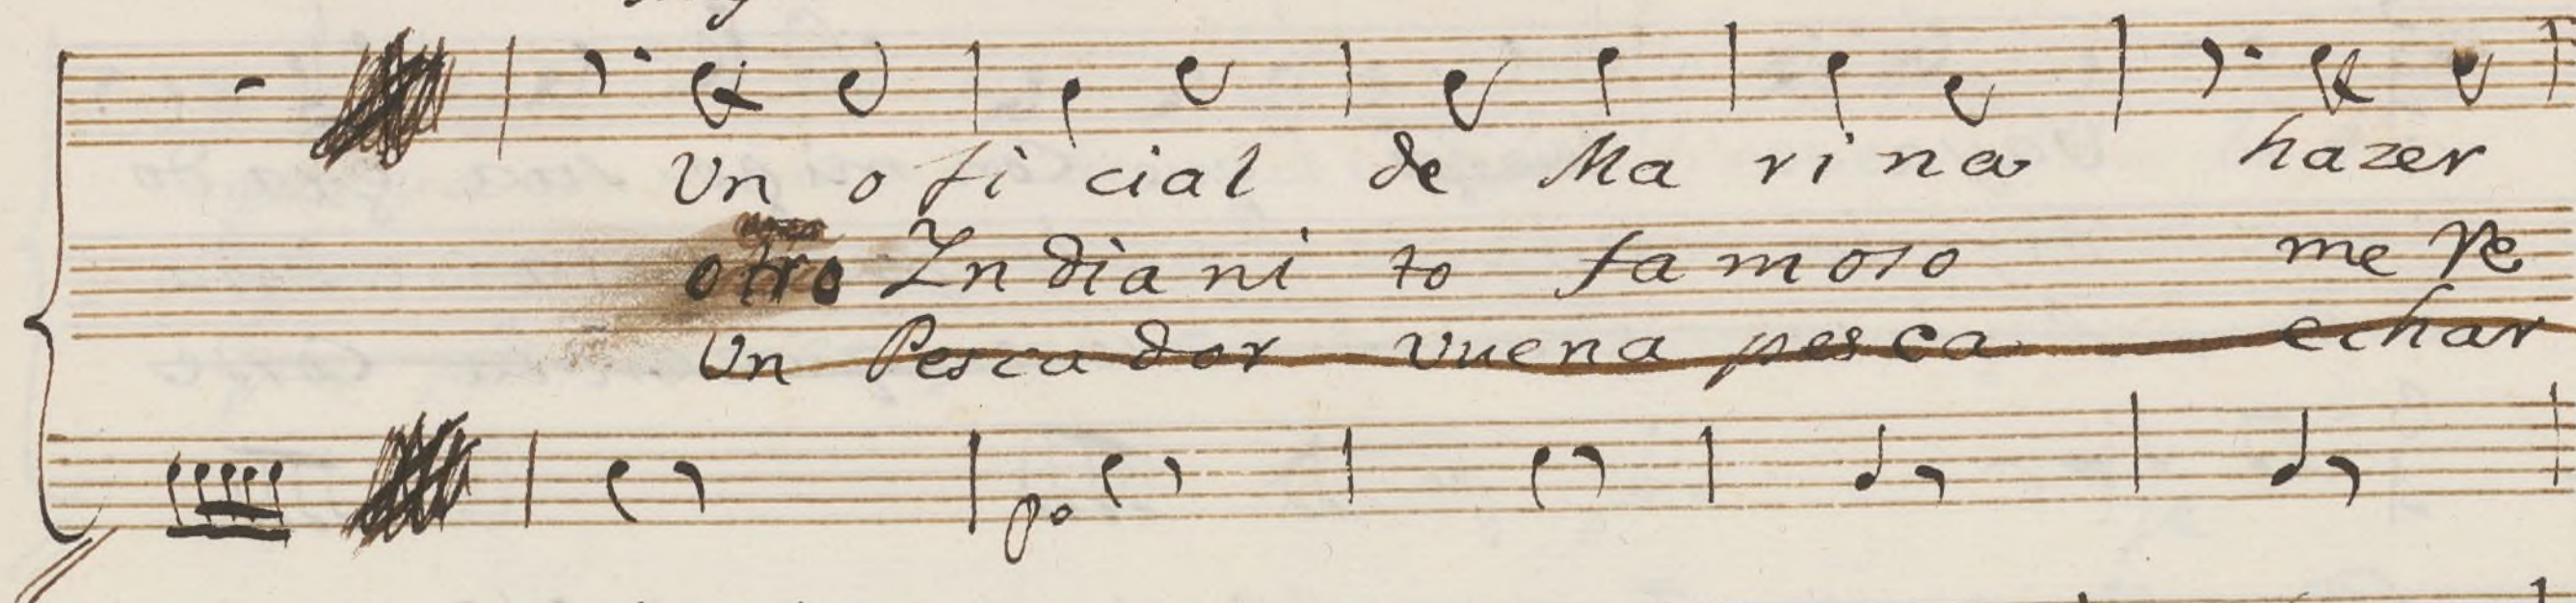 Un o fi cial de Ma ri na hazer
otro In dia ni to famoso me Pe
Un Pescador vuena pesca echar
Po